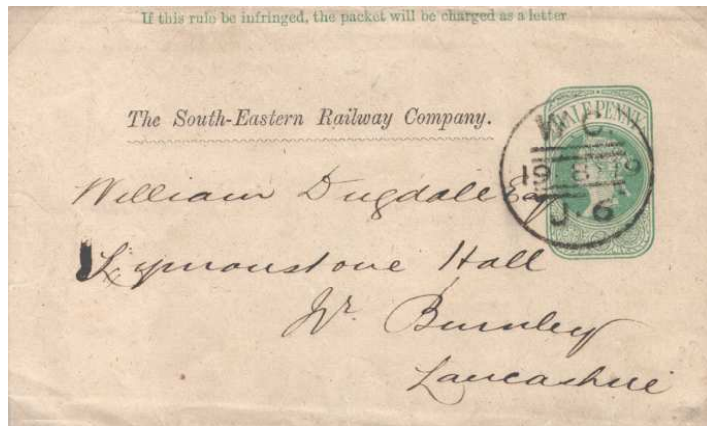 If this rule be infringed, the packet will be charged as a letter
The South-Eastern Railway Company.
HALFPENNY
W.C.
J·6
William Dugdale Esq
Symonstone Hall
Nr. Burnley
Lancashire